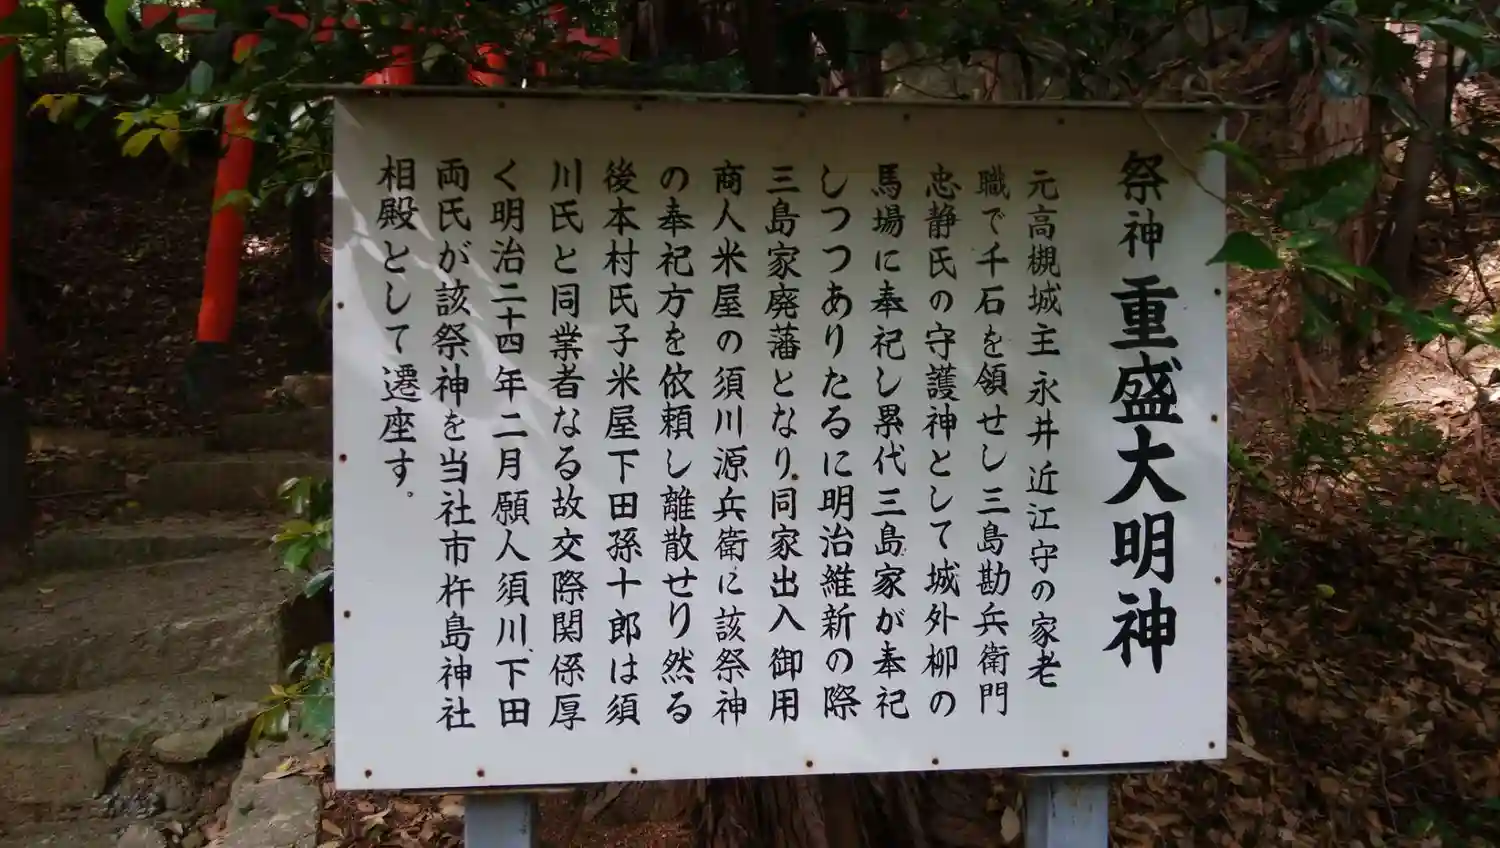 祭神 重盛大明神
元高槻城主永井近江守の家老
職で千石を領せし三島勘兵衛門
忠静氏の守護神として城外柳の
馬場に奉祀し累代三島家が奉祀
しつつありたるに明治維新の際
三島家廃藩となり同家出入御用
商人米屋の須川源兵衛に該祭神
の奉祀方を依頼し離散せり然る
後本村氏子米屋下田孫十郎は須
川氏と同業者なる故交際関係厚
く明治二十四年二月願人須川、下田
両氏が該祭神を当社市杵島神社
相殿として遷座す。